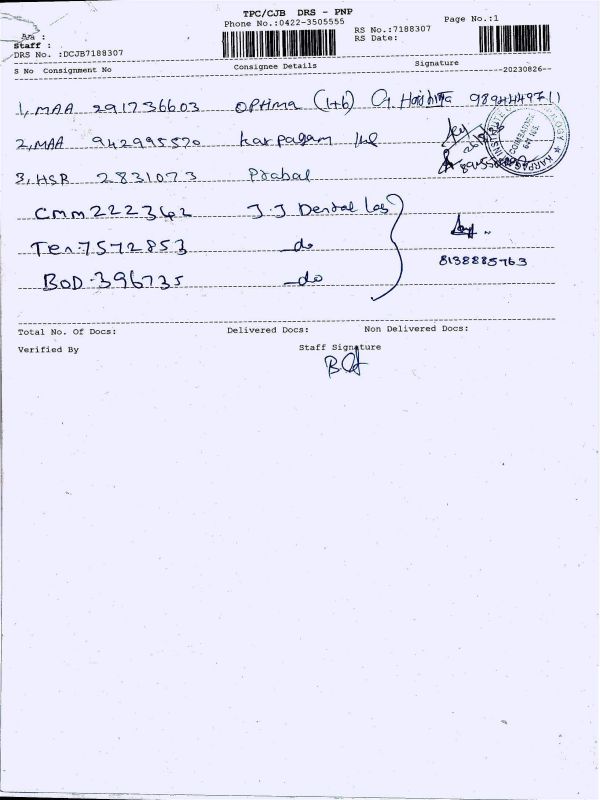 TPC/CJB DRS - PNP
Phone No.:0422-3505555
Page No.:1
RS No.:7188307
RS Date:
Staff :
DRS No. :DCJB7188307
S No Consignment No Consignee Details Signature
20230826
1, MAA 291736603 OPHMA (1+6) G. 9894449711
2, MAA 942995520 karpagam
3, HSR 2831073 Prabal
CMM 222362 J.J Dental Lab
Ten 7572853 do
BOD 396735 do
8138885763
Total No. Of Docs: Delivered Docs: Non Delivered Docs:
Verified By Staff Signature